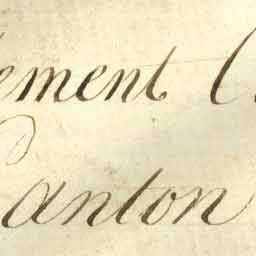 lement C
Canton